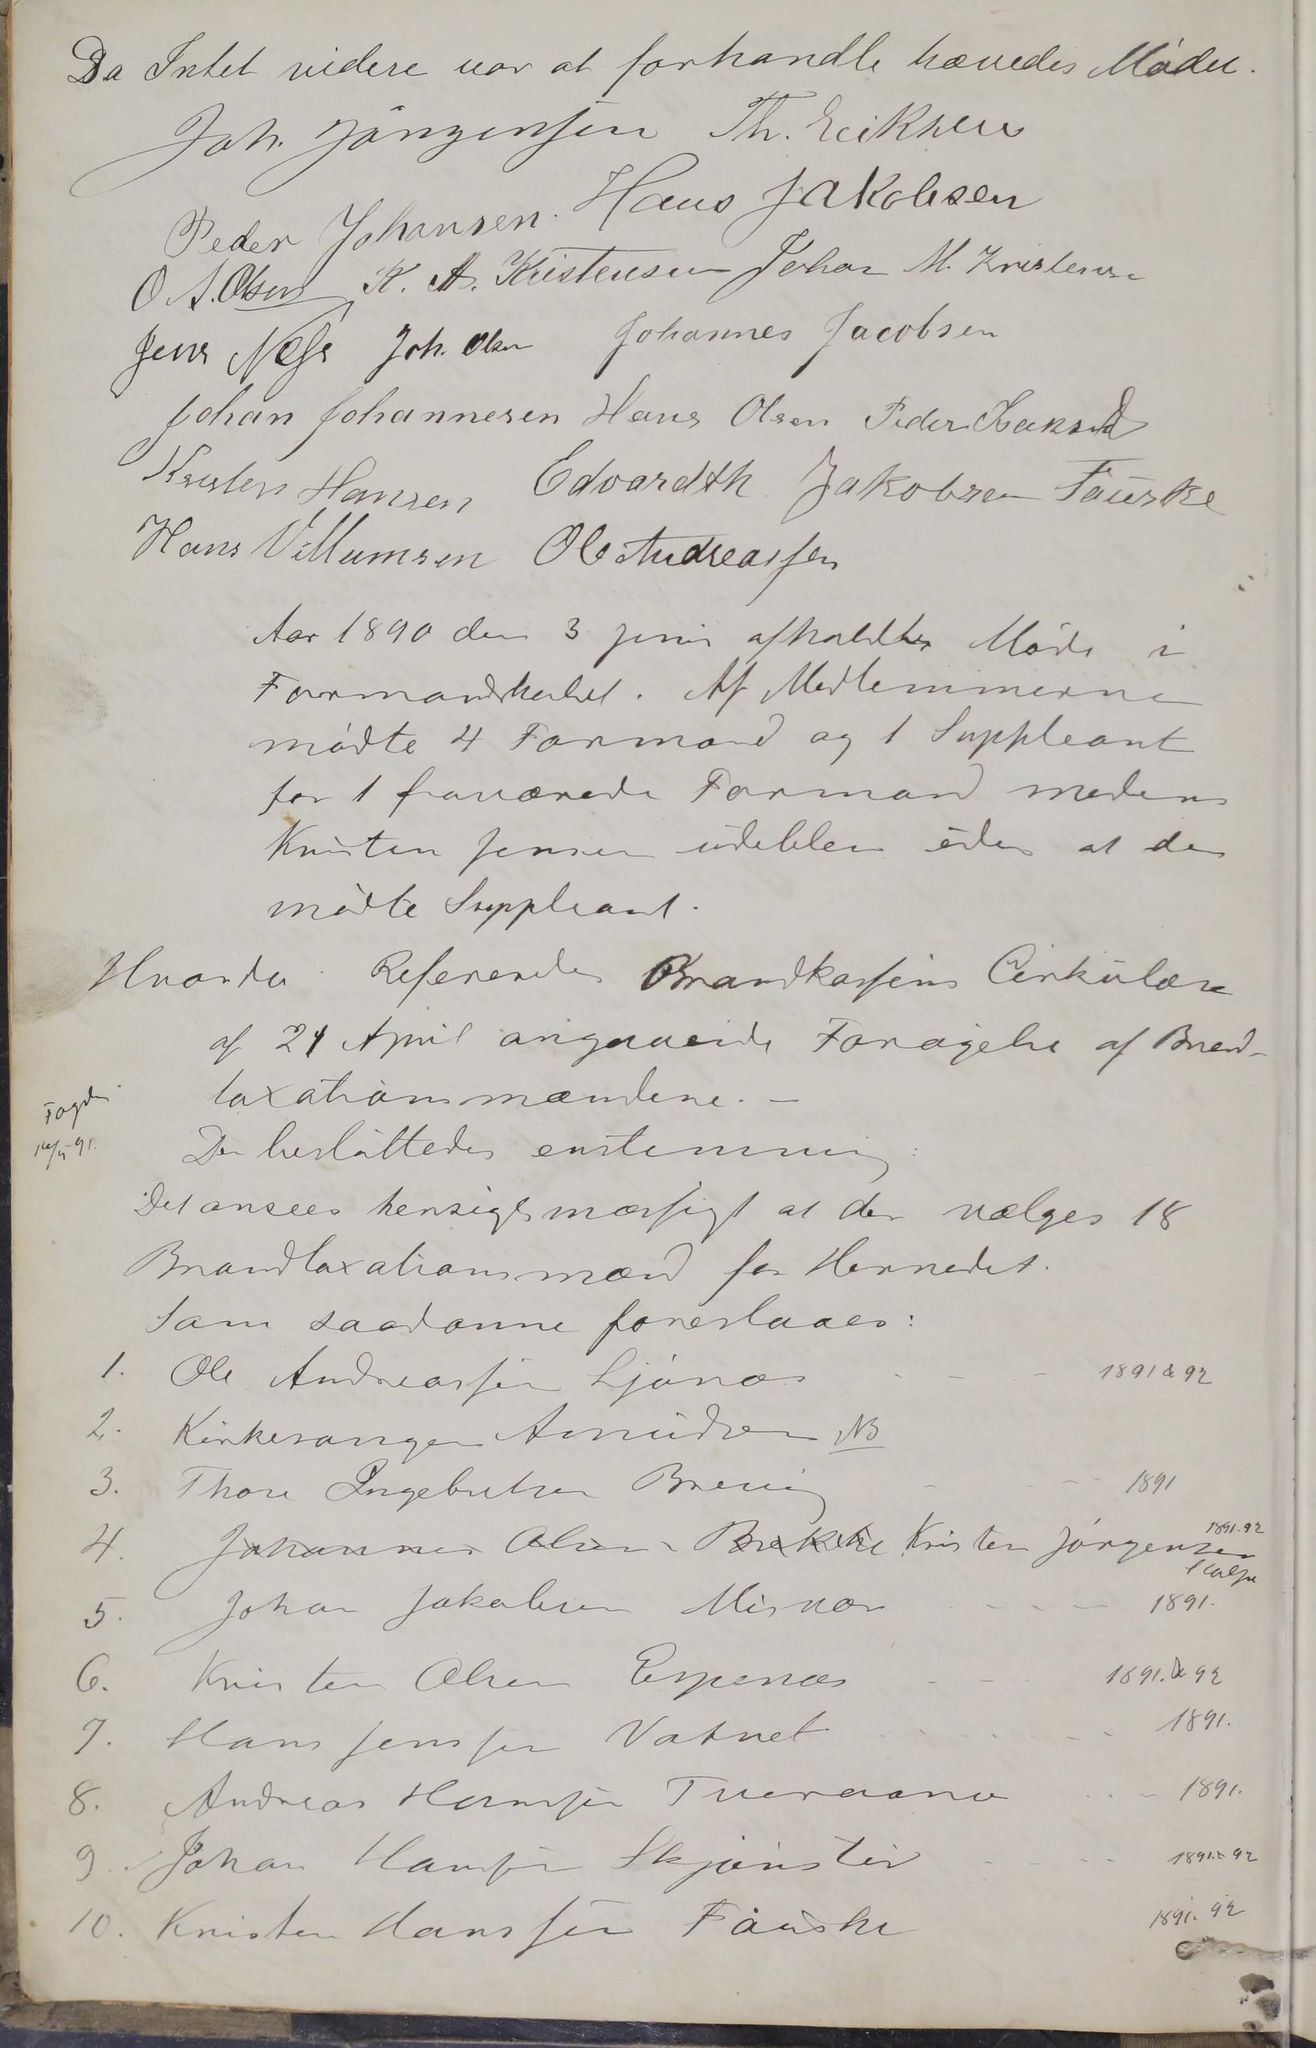 Da Intet videre var at forhandle hævedes Mødet.
Joh. Jørgensen Th. Eriksen
Peder Johansen. Hans Jakobsen
O A. Olsen K. A. Kristensen Johan M. Kristensen
Jens Næss Joh. Olsen Johannes Jacobsen
Johan Johannesen Hans Olsen Peder
Kristen Hansen Edvardth Jakobsen Fauske
Hans Villumsen Ole Andreassen
Aar 1890 den 3 juni afholdtes Møde i
Formandskabet. Af Medlemmerne
mødte 4 Formænd og 1 Suppleant
for 1 fraværende Formand medens
Kristen Jensen udeblev uden at der
mødte Suppleant.
Hvorda Refereredes Brandkassens Cirkulære
af 21 April angaaende Forøgelse af Brand-
taxationsmændene. –
Fogden
91.
Der besluttedes enstemmig:
Det ansees hensigtsmæssigt at der vælges 18
Brandtaxationsmænd for Herredet.
Som saadanne foreslaaes:
1. Ole Andreassen Ljønæs - - - 1891 & 92
2. Kirkesanger Amundsen NB
3. Thore Ingebrigtsen Breivig - - - 1891
4. Johannes Olsen Bækken Kristen Jørgensen 1891.92
5. Johan Jakobsen Misvær - - - - 1891.
6. Kristen Olsen Espenæs - - - 1891. & 92
7. Hans Jenssen Vatnet - - - - 1891.
8. Andreas Hanssen Tveraanæ - - - 1891.
9. Johan Hanssen Skjønstu - - - - 1891 & 92
10. Kristen Hanssen Fauske 1891. 92